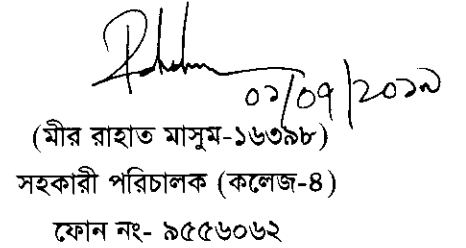 ০১/০৭/২০১৯
(মীর রাহাত মাসুম-১৬৩৯৮)
সহকারী পরিচালক (কলেজ-৪)
ফোন নং- ৯৫৫৬০৬২